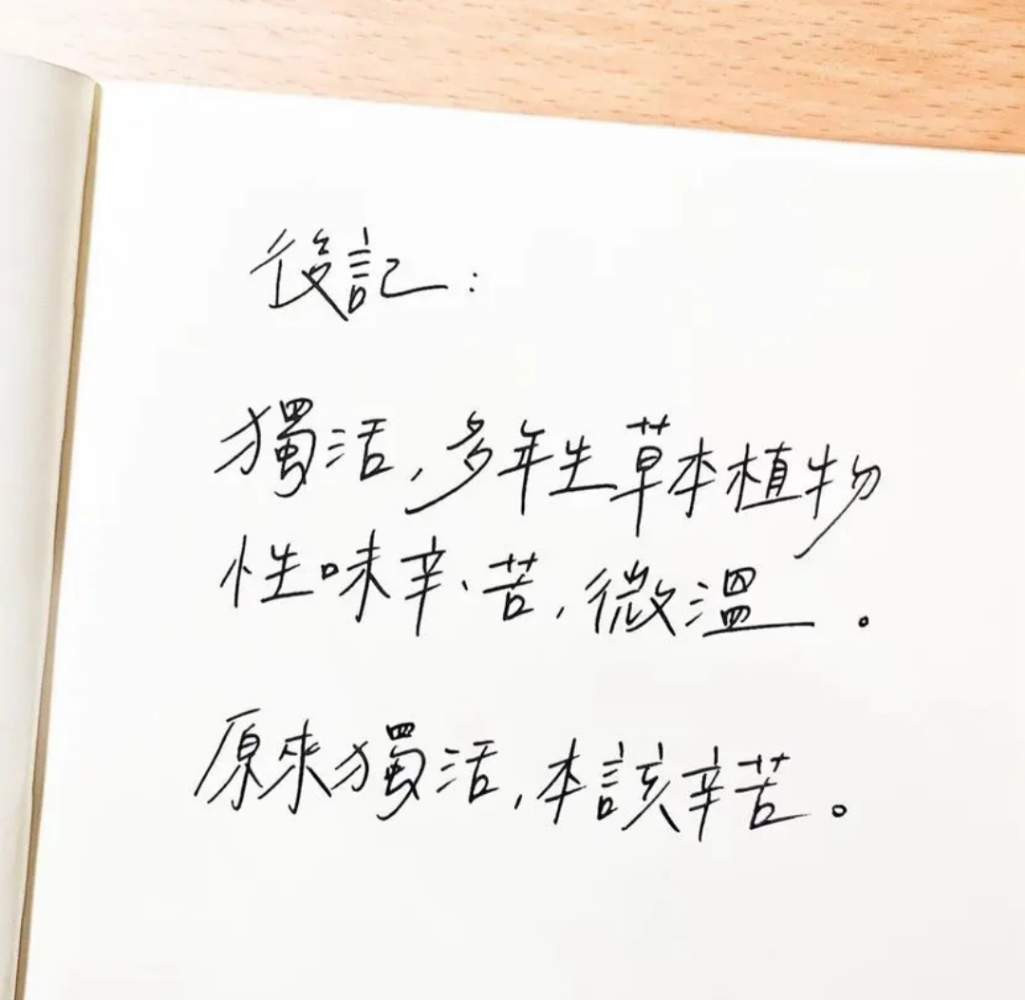 後記：
獨活，多年生草本植物
性味辛、苦，微溫。
原來獨活，本該辛苦。